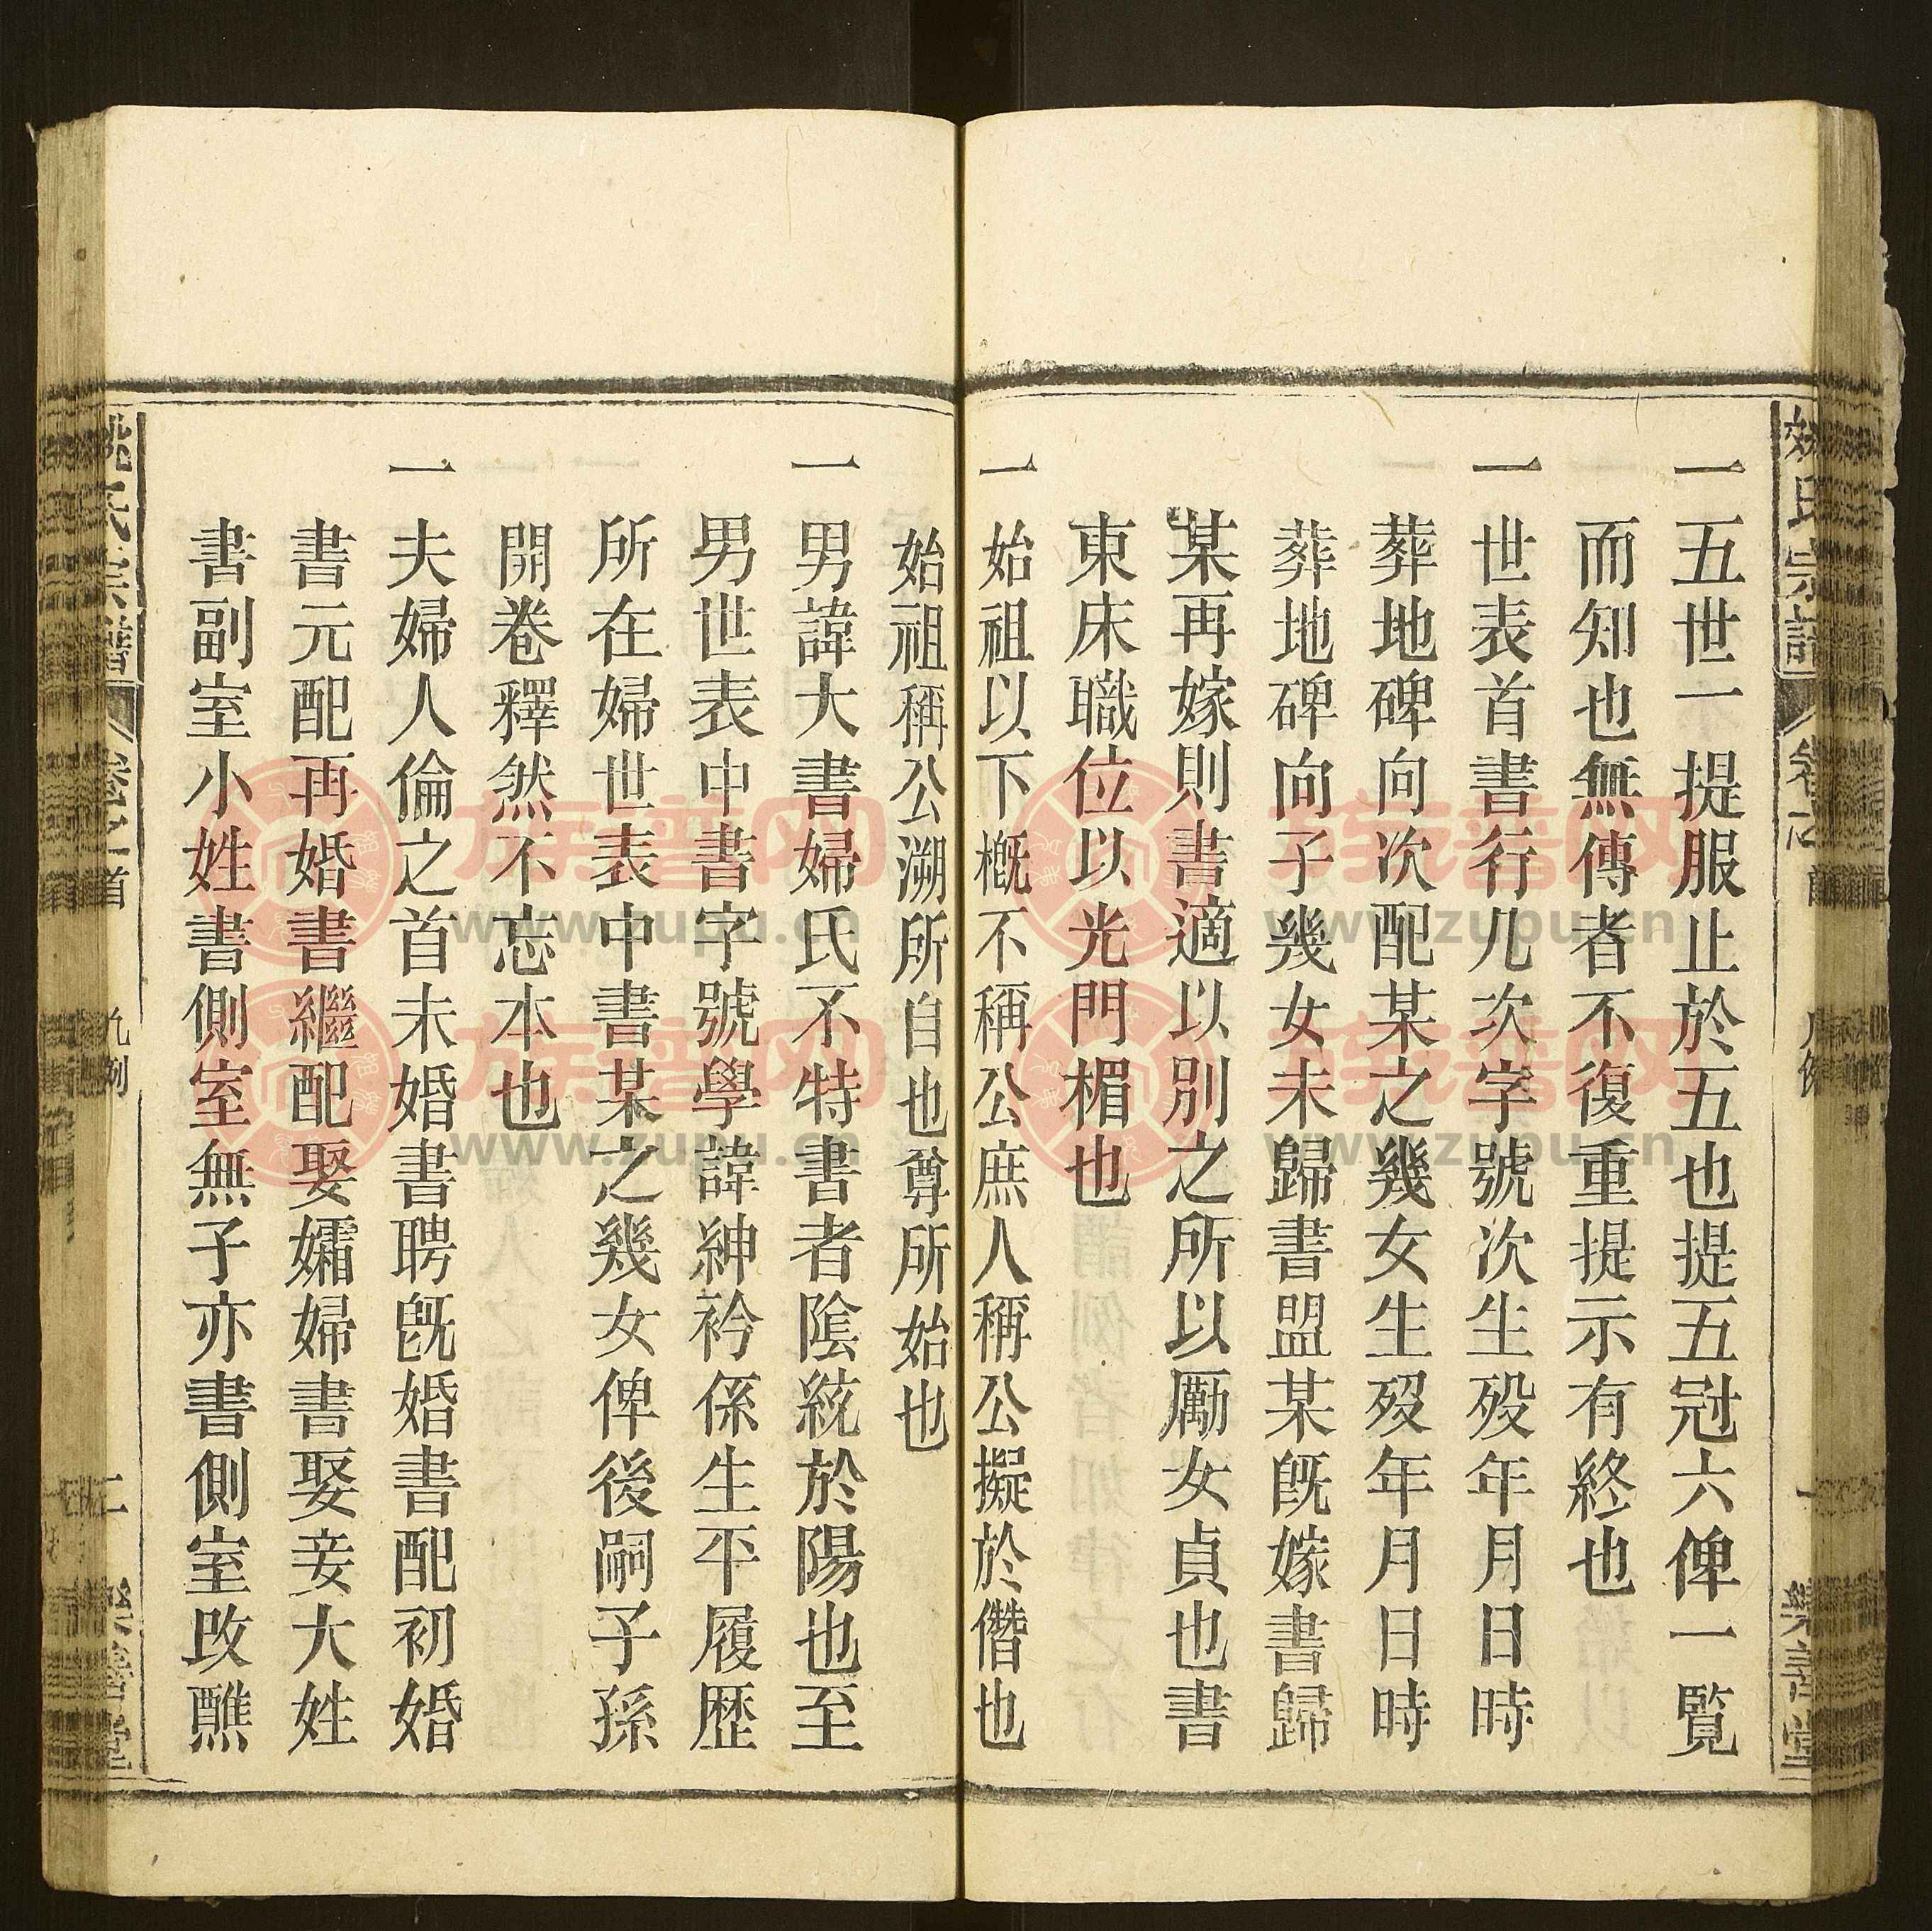 一五世一提服止於五也提五冠六俾一覽
而知也無傳者不復重提示有終也
一世表首書行几次字號次生歿年月日時
葬地碑向次配某之幾女生歿年月日時
葬地碑向子幾女未歸書盟某旣嫁書歸
某再嫁則書適以別之所以勵女貞也書
東床職位以光門楣也
一始祖以下槪不稱公庶人稱公擬於僭也
始祖稱公溯所自也尊所始也
一男諱大書婦氏不特書者陰統於陽也至
男世表中書字號學諱紳衿係生平履歷
所在婦世表中書某之幾女俾後嗣子孫
開卷釋然不忘本也
一夫婦人倫之首未婚書聘旣婚書配初婚
書元配再婚書繼配娶孀婦書娶妾大姓
書副室小姓書側室無子亦書側室改醮
氏宗譜
首
凡例
二
堂
族譜网
www.zupu.cn
族譜网
www.zupu.cn
族譜网
www.zupu.cn
族譜网
www.zupu.cn